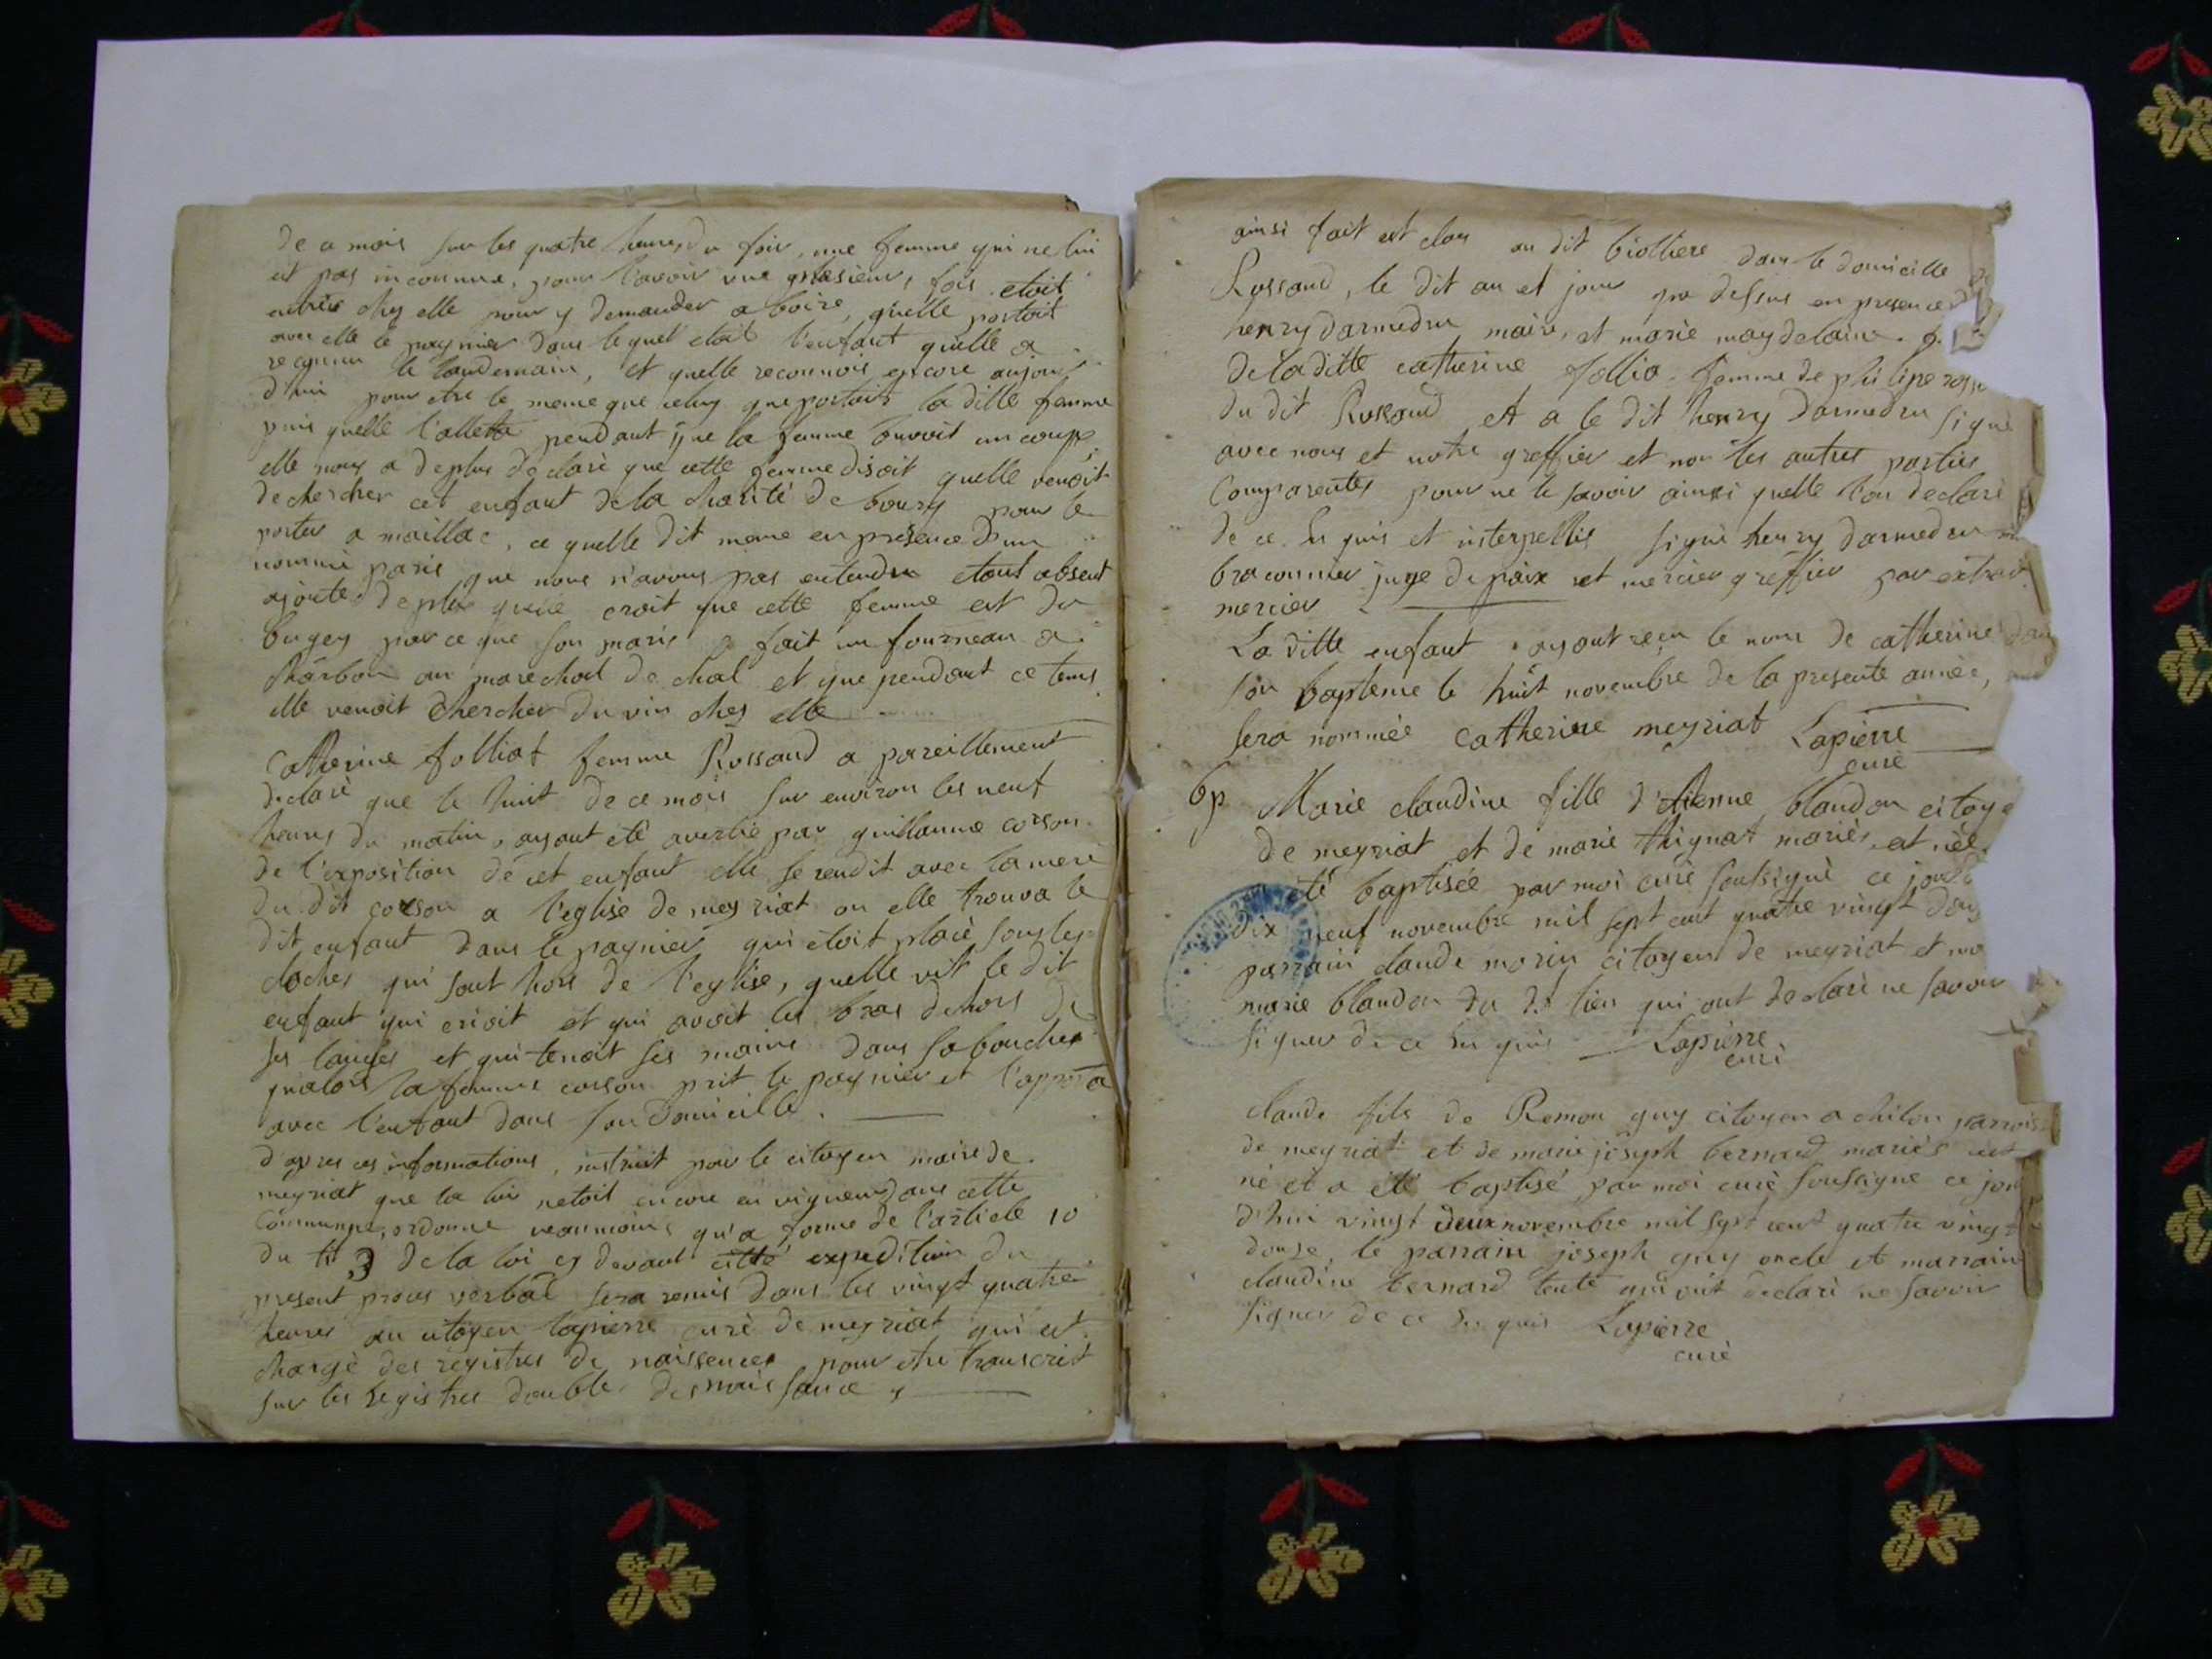 de ce mois sur les quatre heures du soir, une femme qui ne lui
est pas inconnue, pour l'avoir vue plusieurs fois etoit
entrée chez elle pour y demander a boire, qu'elle portoit
avec elle le paynier dans lequel etoit l'enfant qu'elle a
reconnu le landemain, et quelle reconnois encore aujour
d'hui pour etre le meme que celuy que portoit la ditte femme
puis quelle l'alletta pendant que la femme buvoit un coup
elle nous a de plus declaré que cette femme disoit quelle venoit
de chercher cet enfant de la charité de bourg pour le
porter a maillac, ce quelle dit meme en presence d'un
nommé paris que nous n'avons pas entendu etant absent
ajoute de plus quelle croit que cette femme est du
bugey par ce que son maris a fait un fourneau a
charbon au marechal de chal et que pendant ce tems
elle venoit chercher du vin chez elle
Catherine folliat femme Rossand a pareillement
declaré que le huit de ce mois sur environ les neuf
heures du matin, ayant été avertie par guillaume corson
de l'exposition de cet enfant elle se rendit avec la mere
du dit corson a l'eglise de meyriat ou elle trouva le
dit enfant dans le paynier qui etoit placé sous les
cloches qui sont hors de l'eglise, quelle vit le dit
enfant qui crioit et qui avoit les bras dehors de
ses langes et qui tenoit ses mains dans sa bouche
qualors la femme corson prit le paynier et l'aporta
avec l'enfant dans son domicille.
d'apres ces informations, instruit par le citoyen maire de
meyriat que la loi netoit encore en vigueur dans cette
Commune, ordonne neanmoins qu'a forme de l'article 10
du tit 3 de la loi cy devant citté expedition du
present proces verbal sera remis dans les vingt quatre
heures au citoyen lapierre curé de meyriat qui est
chargé des registres de naissences pour etre transcrit
sur les registres double de naissance
ainsi fait et clos au dit biolliere dans le domicille
Rossand, le dit an et jour que dessus en presence
henry darmedru maire, et marie magdelaine
de la ditte catherine follia femme de philipe
du dit Rossand et a le dit henry darmedru signé
avec nous et notre greffier et non les autres parties
Comparentes pour ne le savoir ainsi quelle l'on declaré
de ce en quis et interpellés signé henry darmedru
braconnier juge de paix et mercier greffier par extrai
mercier
La ditte enfant ayant reçu le nom de catherine dans
son bapteme le huit novembre de la presente année,
sera nommée catherine meyriat Lapierre
curé
bp Marie claudine fille d'etienne blandon citoye
de meyriat et de marie thignat mariés est née
été baptisée par moi curé soussigné ce jour
dix neuf novembre mil sept cent quatre vingt dou
parrain claude morin citoyen de meyriat et ma
marie blandon du dt lieu qui ont declaré ne savoir
signer de ce en quis Lapierre
curé
claude fils de Remon guy citoyen a chilon parroiss
de meyriat et de marie joseph bernard mariés est
né et a été baptisé par moi curé soussigné ce jour
d'hui vingt deux novembre mil sept cent quatre vingt
douse, le parrain joseph guy oncle et marraine
claudine bernard tente qui ont declaré ne savoir
signer de ce en quis Lapierre
curé